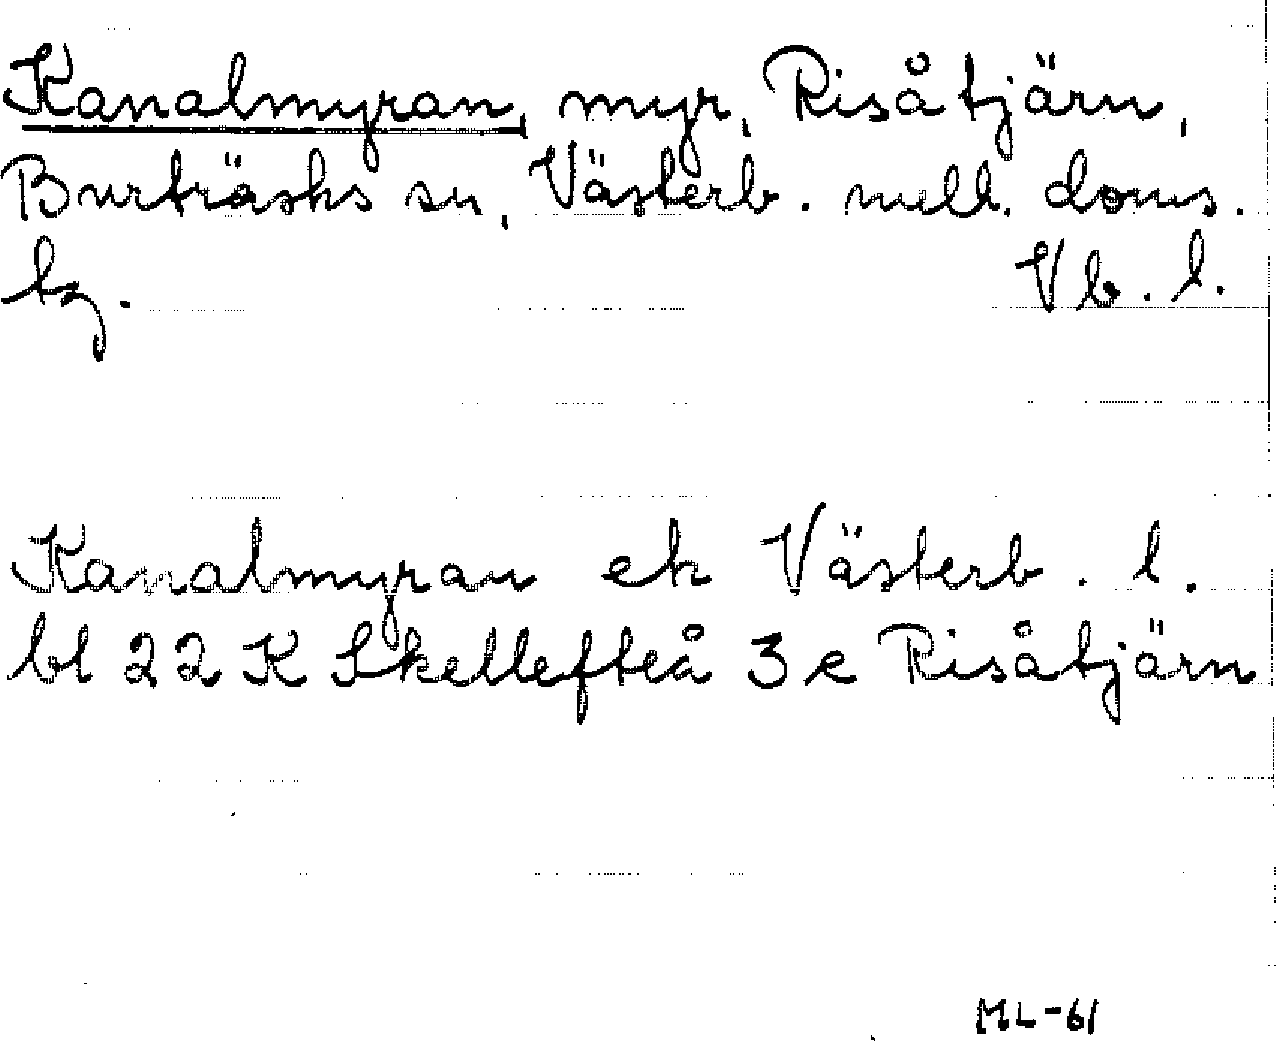 Kanalmyran, myr, Risåtjärn,
Burträsks sn, Västerb. mell. doms.
tg. Vb. l.
Kanalmyran ek Västerb. l.
bl 22 K Skellefteå 3 e Risåtjärn
ML-61